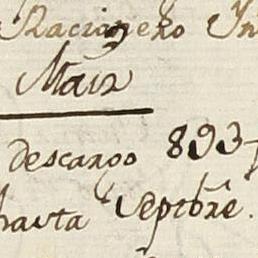 Racionero In
Maiz
Descargo 893
hasta Septbrē.